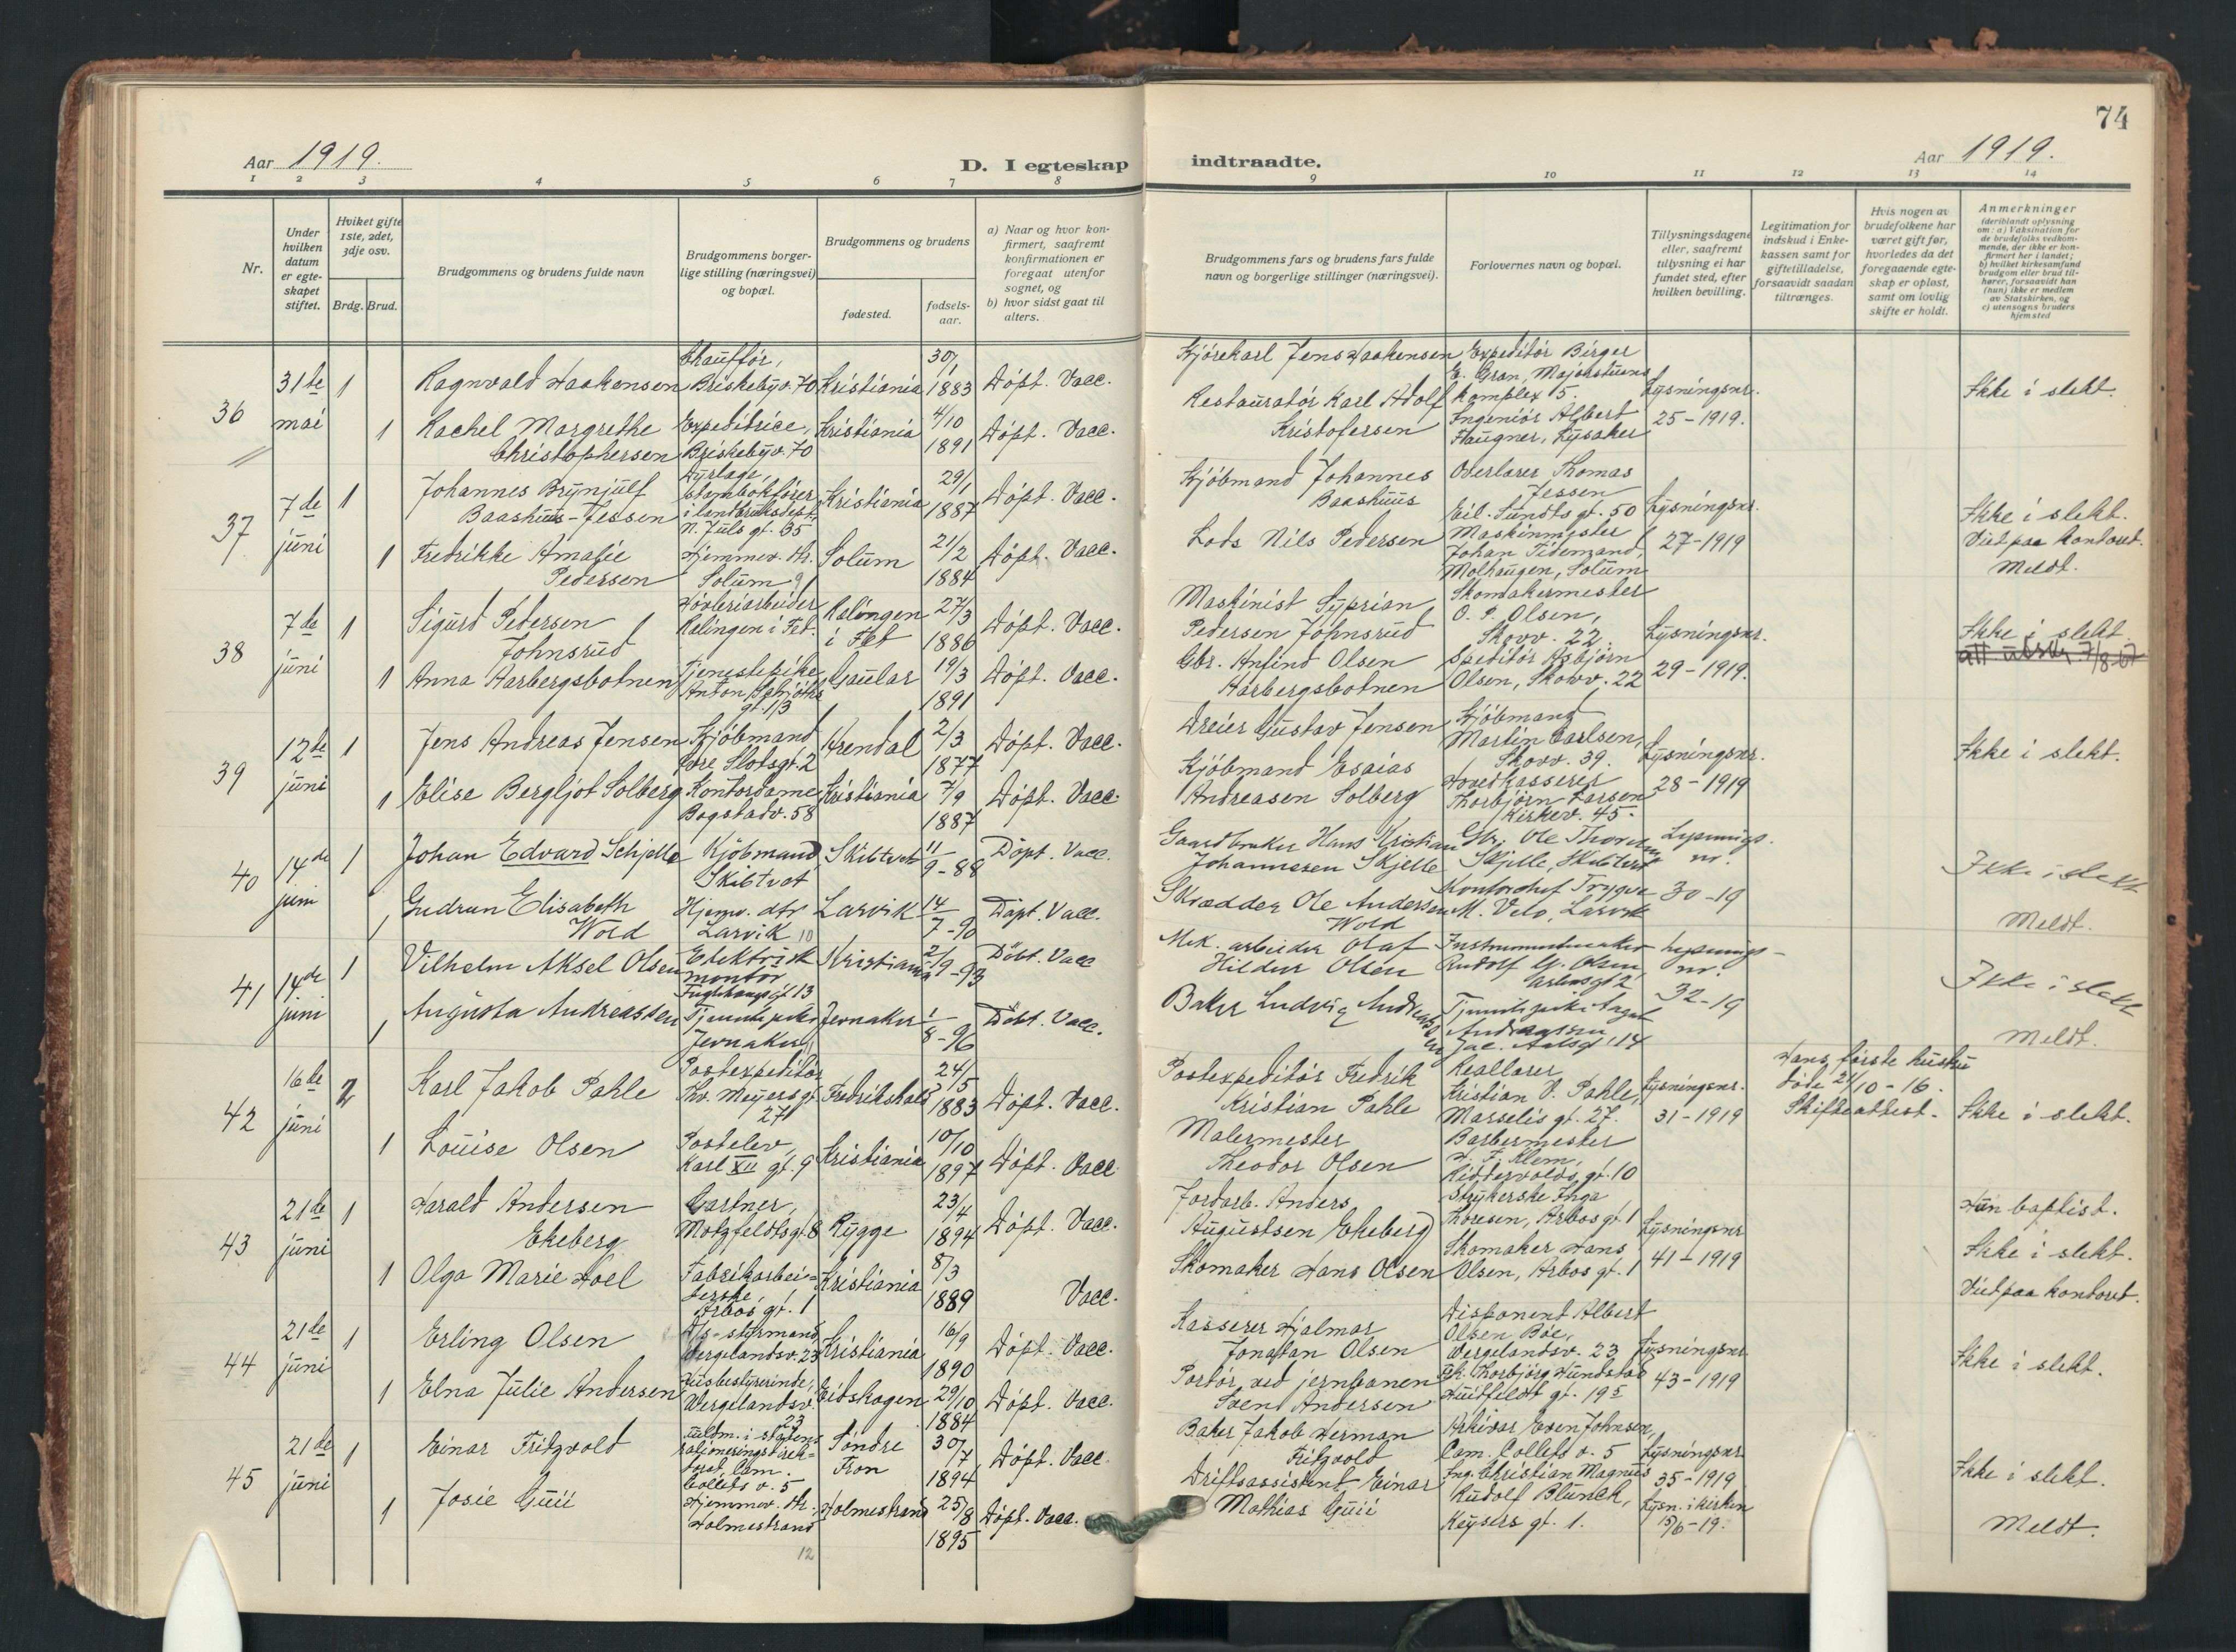 74
Aar 1919.
D. I egteskap indtraadte.
Aar 1919.
1 2 3 4 5 6 7 8 9 10 11 12 13 14
Nr.
Under hvilken datum er egteskapet stiftet.
Hviket gifte 1ste, 2det, 3dje osv.
Brdg. Brud.
Brudgommens og brudens fulde navn
Brudgommens borgerlige stilling (næringsvei) og bopæl.
Brudgommens og brudens
fødested.
fødselsaar.
a) Naar og hvor konfirmert, saafremt konfirmationen er foregaat utenfor sognet, og
b) hvor sidst gaat til alters.
Brudgommens fars og brudens fars fulde navn og borgerlige stillinger (næringsvei).
Forlovernes navn og bopæl.
Tillysningsdagene eller, saafremt tillysning ei har fundet sted, efter hvilken bevilling.
Legitimation for indskud i Enkekassen samt for giftetilladelse, forsaavidt saadan tiltrænges.
Hvis nogen av brudefolkene har været gift før, hvorledes da det foregaaende egteskap er opløst, samt om lovlig skifte er holdt.
Anmerkninger
(deriblandt oplysning om: a) Vaksination for de brudefolks vedkommende, der ikke er konfirmert her i landet; b) hvilket kirkesamfund brudgom eller brud tilhører, forsaavidt han (hun) ikke er medlem av Statskirken, og c) utensogns bruders hjemsted
36 31te mai
1 Ragnvald Haakensen Chauffør, Briskebyv. 70 Kristiania 30/1 1883 Døpt. Vacc.
Kjørekarl Jens Haakensen
Expeditør Birger E. Gran, Majorstuens komplex 5.
Lysningsnr. 25-1919.
Ikke i slekt.
1 Rachel Margrethe Christophersen Expeditrice, Briskebyv. 70 Kristiania 4/10 1891 Døpt. Vacc.
Restauratør Karl Adolf Kristofersen
Ingeniør Albert Haugner, Lysaker
37 7de juni
1 Johannes Brynjulf Baashuus-Jessen Dyrlæge, stambokfører i landbruksdept. N. Juls gt. 65 Kristiania 29/1 1887 Døpt. Vacc.
Kjøbmand Johannes Baashuus
Overlærer Thomas Jessen Eil. Sundts gt. 50
Lysningsnr. 27-1919
Ikke i slekt. Viet paa kontoret. Meldt.
1 Fredrikke Amalie Pedersen Hjemmev. dtr. Solum 9 Solum 21/2 1884 Døpt. Vacc.
Lods Nils Pedersen
Maskinmester Johan Tidemand, Molhaugen, Solum
38 7de juni
1 Sigurd Pedersen Johnsrud Høvleriarbeider Ralingen i Fet. Ralingen i Fet 27/3 1886 Døpt. Vacc.
Maskinist Syprian Pedersen Johnsrud
Skomakermester O. P. Olsen, Skovv. 22.
Lysningsnr. 29-1919.
Ikke i slekt.
att. utskr. 7/8-57
1 Anna Aarbergsbotnen Tjenestepike Anton Schjøths gt. 13 Gaular 19/3 1891 Døpt. Vacc.
Gbr. Anfind Olsen Aarbergsbotnen
Speditør Asbjørn Olsen, Skovv. 22
39 12te juni
1 Jens Andreas Jensen Kjøbmand Øvre Slotsgt. 2 Arendal 2/3 1877 Døpt. Vacc.
Dreier Gustav Jensen
Kjøbmand Martin Carlsen, Skovv. 39.
Lysningsnr. 28-1919
Ikke i slekt.
1 Elise Bergljot Solberg Kontordame Bogstadv. 58 Kristiania 7/9 1887 Døpt. Vacc.
Kjøbmand Esaias Andreasen Solberg
Hovedkasserer Thorbjørn Larsen Kirkev. 45.
40 14de juni
1 Johan Edvard Schjelle Kjøbmand Skibtvet Skibtvet 11/9-88 Døpt. Vacc.
Gaardbruker Hans Kristian Johannesen Skjelle
Gbr. Ole Thoresen Skjelle, Skibtvet
Lysnings nr. 30-19
Ikke i slekt
Meldt.
1 Gudrun Elisabeth Wold Hjemv. dtr Larvik 10 Larvik 14/7-90 Døpt. Vacc.
Skrædder Ole Andersen Wold
Kontorchef Trygve M. Velo, Larvik
41 14de juni
1 Vilhelm Aksel Olsen Elektrisk montør Fuglehaugsgt 13 Kristiania 2/9-93 Døbt. Vacc
Mek. arbeider Olaf Hildur Olsen
Instrumentmaker Rudolf G. Olsen Arbosgt 2
Lysnings-nr. 32-19
Ikke i slekt
Meldt.
1 Augusta Andreassen Tjenestepike Jevnaker 11 Jevnaker 1/8-96 Døbt. Vacc.
Baker Ludvig Andreassen
Tjenestepike Aagot Andreassen Jac. Aalsgt 14
42 16de juni
2 Karl Jakob Pahle Postexpeditør Thv. Meyers gt 27 Fredrikshald 24/5 1883 Døpt. Vacc.
Postexpeditør Fredrik Kristian Pahle
Reallærer Kristian V. Pahle, Marselis gt. 27.
Lysningsnr. 31-1919
Hans første hustru døde 21/10-16. Skifteattest.
Ikke i slekt.
1 Louise Olsen Postelev, Karl XII gt. 9 Kristiania 10/10 1897 Døpt. Vacc
Malermester Theodor Olsen
Barbermester H. F. Klem, Riddervolds gt. 10
43 21de juni
1 Harald Andersen Ekeberg Gartner, Motzfeldtsgt. 8 Rygge 23/4 1894 Døpt. Vacc.
Jordarb. Anders Augustsen Ekeberg
Strykerske Inga Thoresen, Arbos gt. 1
Lysningsnr 41-1919
Hun baptist.
Ikke i slekt.
Viet paa kontoret.
1 Olga Marie Hoel Fabrikarbeiderske, Arbos gt. 1 Kristiania 8/3 1889 Vacc.
Skomaker Hans Olsen
Skomaker Hans Olsen, Arbos gt. 1
44 21de juni
1 Erling Olsen D/s-styrmand, Wergelandsv. 23 Kristiania 16/9 1890 Døpt. Vacc.
Kasserer Hjalmar Jonatan Olsen
Disponent Albert Olsen Bøe, Wergelandsv. 23
Lysningsnr. 43-1919
Ikke i slekt.
1 Elna Julie Andersen Husbestyrerinde, Wergelandsv. 23 Eidskogen 29/10 1884 Døpt. Vacc.
Portør ved jernbanen Sven Andersen
Frk. Thorbjørg Hundstad Huitfeldt gt. 19
45 21de juni
1 Einar Fritzvold fuldm. i statens rationeringsdirektorat, Cam. Colletts v. 5 Søndre Fron 30/7 1894 Døpt. Vacc.
Baker Jakob Herman Fritzvold
Arkivar Even Johnsen, Cam. Colletts v. 5
Lysningsnr 35-1919
Lysn. i kirken 15/6-19.
Ikke i slekt.
Meldt.
1 Josie Guii Hjemmev. dtr. Holmestrand 12 Holmestrand 25/8 1895 Døpt. Vacc.
Driftsassistent Einar Mathias Guii
Ing. Christian Magnus Rudolf Blunck, Keysers gt. 1.